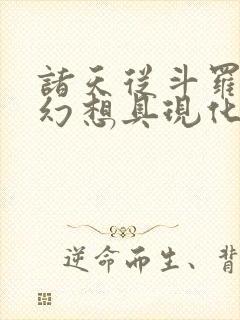 諸天從斗羅
幻想具現化
逆命而生、背